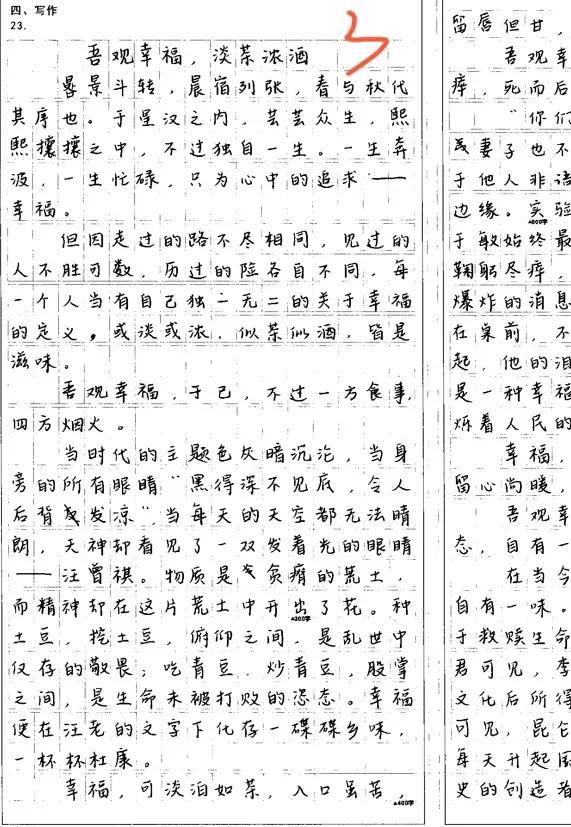 四、写作
23.
吾观幸福，淡茶浓酒
晷景斗转，晨宿列张，春与秋代
其序也。于星汉之内，芸芸众生，熙
熙攘攘之中，不过独自一生。一生奔
波，一生忙碌，只为心中的追求——
幸福。
但因走过的路不尽相同，见过的
人不胜可数，历过的险各自不同，每
一个人当有自己独一无二的关于幸福
的定义，或淡或浓，似茶似酒，皆是
滋味。
吾观幸福，于己，不过一方食事，
四方烟火。
当时代的主题色灰暗沉沦，当身
旁的所有眼睛“黑得深不见底，令人
后背发凉”，当每天的天空都无法晴
朗，天神却看见了一双发着光的眼睛
——汪曾祺。物质是贫瘠的荒土，
而精神却在这片荒土中开出了花。种
▲300字
土豆，挖土豆，俯仰之间，是乱世中
仅存的敬畏；吃青豆，炒青豆，股掌
之间，是生命未被打败的姿态。幸福
便在汪老的文字下化存一碟碟乡味，
一杯杯杜康。
幸福，可淡泊如茶，入口虽苦，
▲400字
留唇但甘，
吾观幸
瘁，死而后
“你们
妻子也不
于他人非
边缘。实验
▲500字
于敏始终最
鞠躬尽瘁，
爆炸的消息
在桌前，不
起，他的泪
是一种幸福
烁着人民的
幸福，
留心尚暖，
吾观幸
态，自有一
在当今
自有一味。
于救赎生命
君可见，李
文化后所得
可见，昆仑
每天升起国
史的创造者